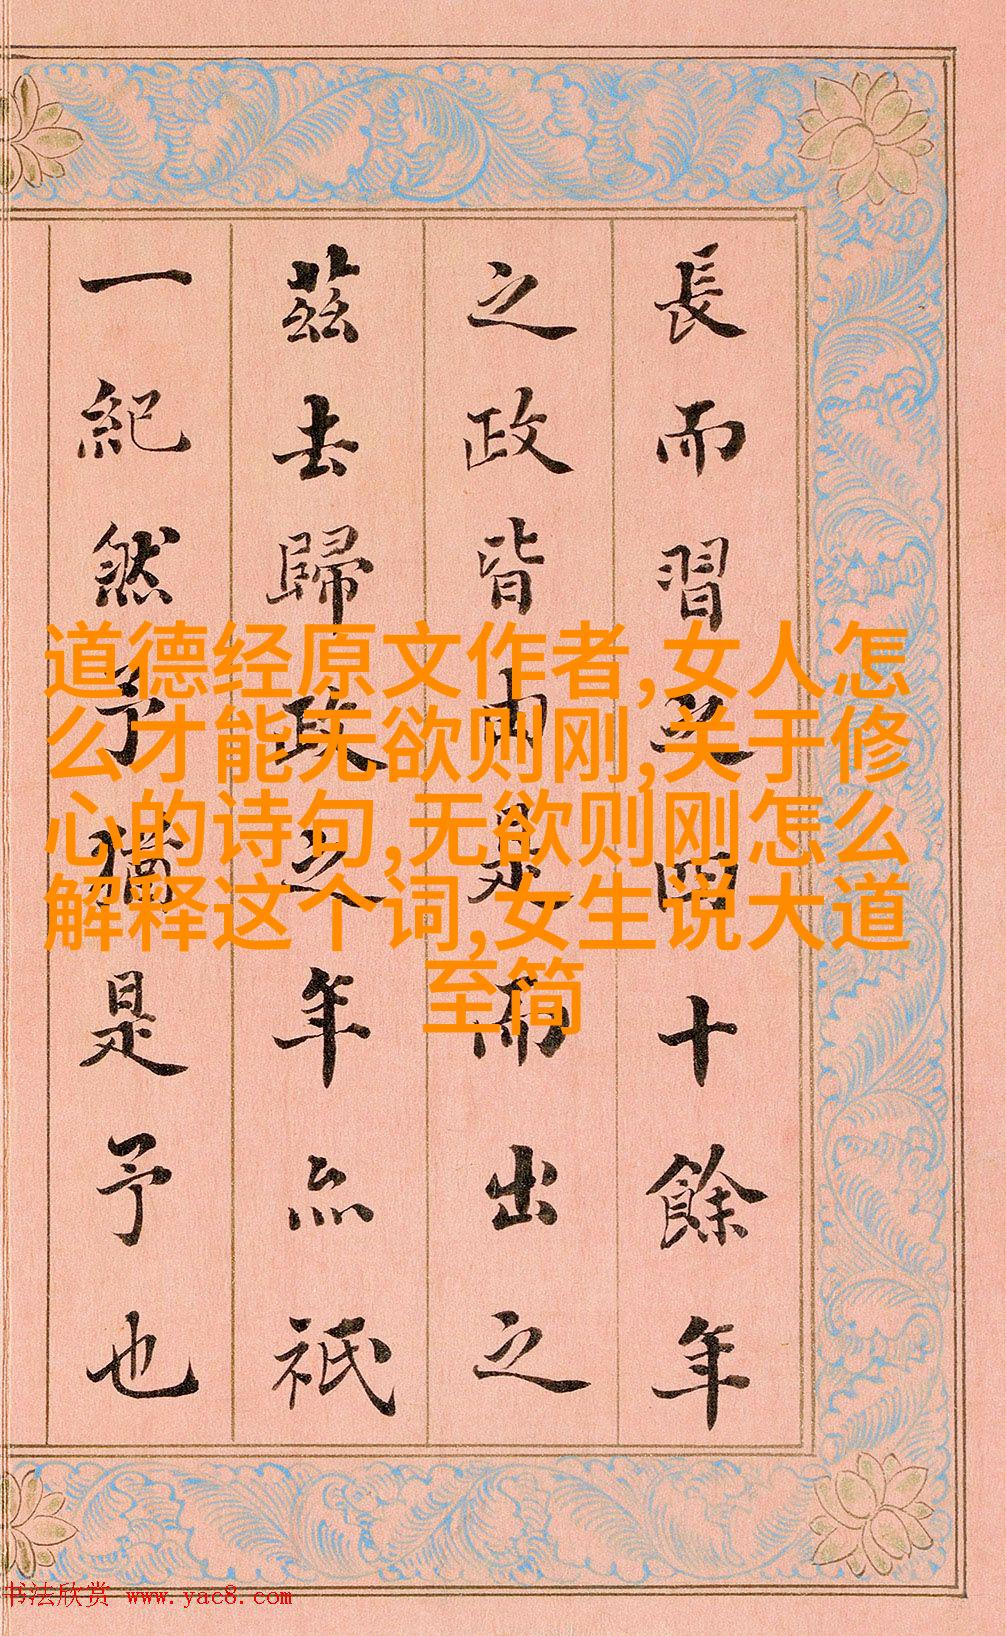 長而習之四十餘年
之政皆由是而出之
茲去歸政之年亦祇
一紀然予猶是予也
道德经原文作者,女人怎
么才能无欲则刚,关于修
心的诗句,无欲则刚怎么
解释这个词,女生说大道
至简
书法欣赏 www.yac8.com